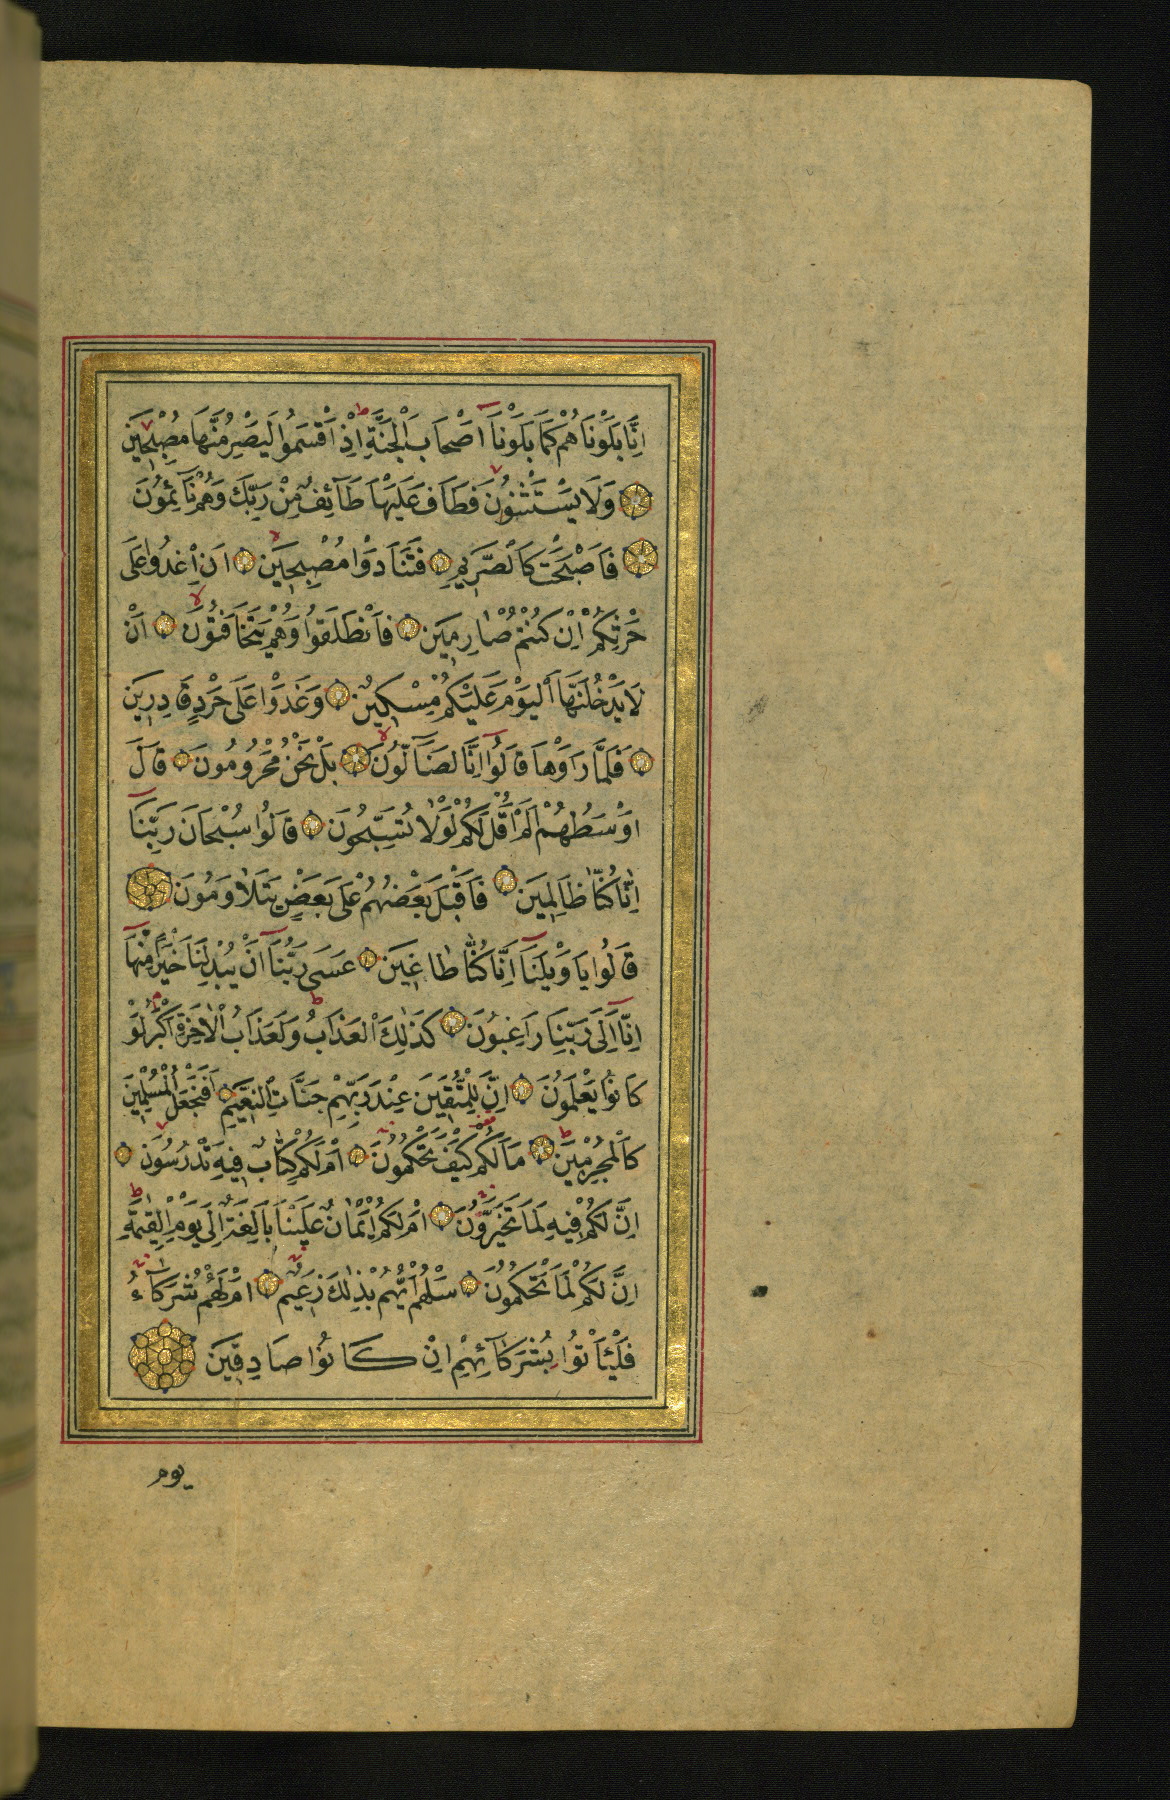 اِنَّا بَلَوْنَاهُمْ كَمَا بَلَوْنَٓا اَصْحَابَ الْجَنَّةِ اِذْ اَقْسَمُوا لَيَصْرِمُنَّهَا مُصْبِحٖينَ
وَلَا يَسْتَثْنُونَ فَطَافَ عَلَيْهَا طَٓائِفٌ مِنْ رَبِّكَ وَهُمْ نَٓائِمُونَ
فَاَصْبَحَتْ كَالصَّرٖيمِ فَتَنَادَوْا مُصْبِحٖينَ اَنِ اغْدُوا عَلٰى
حَرْثِكُمْ اِنْ كُنْتُمْ صَارِمٖينَ فَانْطَلَقُوا وَهُمْ يَتَخَافَتُونَ اَنْ
لَا يَدْخُلَنَّهَا الْيَوْمَ عَلَيْكُمْ مِسْكٖينٌ وَغَدَوْا عَلٰى حَرْدٍ قَادِرٖينَ
فَلَمَّا رَاَوْهَا قَالُٓوا اِنَّا لَضَٓالُّونَ بَلْ نَحْنُ مَحْرُومُونَ قَالَ
اَوْسَطُهُمْ اَلَمْ اَقُلْ لَكُمْ لَوْلَا تُسَبِّحُونَ قَالُوا سُبْحَانَ رَبِّنَٓا
اِنَّا كُنَّا ظَالِمٖينَ فَاَقْبَلَ بَعْضُهُمْ عَلٰى بَعْضٍ يَتَلَاوَمُونَ
قَالُوا يَا وَيْلَنَٓا اِنَّا كُنَّا طَاغٖينَ عَسٰى رَبُّنَٓا اَنْ يُبْدِلَنَا خَيْرًا مِنْهَٓا
اِنَّٓا اِلٰى رَبِّنَا رَاغِبُونَ كَذٰلِكَ الْعَذَابُ وَلَعَذَابُ الْاٰخِرَةِ اَكْبَرُ لَوْ
كَانُوا يَعْلَمُونَ اِنَّ لِلْمُتَّقٖينَ عِنْدَ رَبِّهِمْ جَنَّاتِ النَّعٖيمِ اَفَنَجْعَلُ الْمُسْلِمٖينَ
كَالْمُجْرِمٖينَ مَا لَكُمْ كَيْفَ تَحْكُمُونَ اَمْ لَكُمْ كِتَابٌ فٖيهِ تَدْرُسُونَ
اِنَّ لَكُمْ فٖيهِ لَمَا تَخَيَّرُونَ اَمْ لَكُمْ اَيْمَانٌ عَلَيْنَا بَالِغَةٌ اِلٰى يَوْمِ الْقِيٰمَةِ
اِنَّ لَكُمْ لَمَا تَحْكُمُونَ سَلْهُمْ اَيُّهُمْ بِذٰلِكَ زَعٖيمٌ اَمْ لَهُمْ شُرَكَٓاءُ
فَلْيَاْتُوا بِشُرَكَٓائِهِمْ اِنْ كَانُوا صَادِقٖينَ
يوم